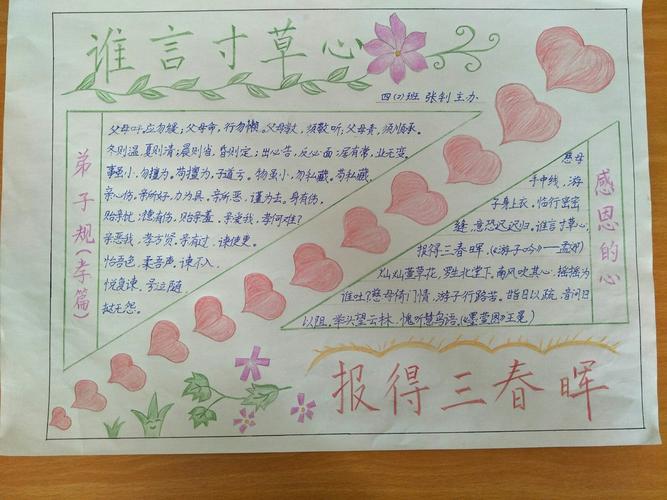 谁言寸草心
四(2)班 张钊 主办
弟子规(孝篇)
父母呼,应勿缓;父母命,行勿懒。父母教,须敬听,父母责,须顺承。
冬则温,夏则清;晨则省,昏则定;出必告,反必面;居有常,业无变。
事虽小,勿擅为。苟擅为,子道亏。物虽小,勿私藏。苟私藏,
亲心伤。亲所好,力为具。亲所恶,谨为去。身有伤,
贻亲忧;德有伤,贻亲羞。亲爱我,孝何难?
亲恶我,孝方贤。亲有过,谏使更。
怡吾色,柔吾声。谏不入,
悦复谏,号泣随
挞无怨。
感恩的心
慈母
手中线,游
子身上衣,临行密密
缝,意恐迟迟归。谁言寸草心,
报得三春晖。《游子吟》——孟郊
灿灿萱草花,罗生北堂下。南风吹其心,摇摇为
谁吐?慈母倚门情,游子行路苦。甘旨日以疏,音问日
以阻。举头望云林,愧听慧鸟语。《墨萱图》王冕
报得三春晖